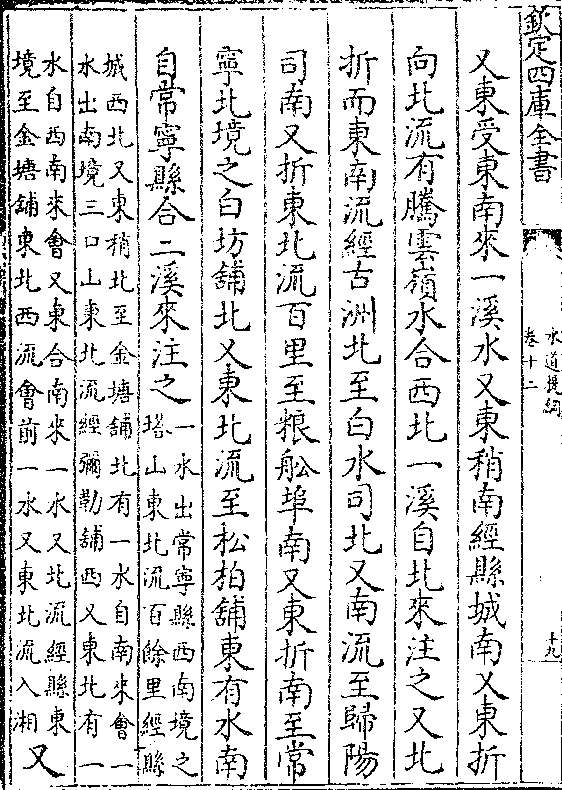 欽定四庫全書
水道提綱
卷十二
十九
又東受東南來一溪水又東稍南經縣城南又東折
向北流有騰雲嶺水合西北一溪自北來注之又北
折而東南流經古洲北至白水司北又南流至歸陽
司南又折東北流百里至粮舩埠南又東折南至常
寧北境之白坊舖北又東北流至松柏舖東有水南
自常寧縣合二溪來注之
一水出常寧縣西南境之
塔山東北流百餘里經縣
城西北又東稍北至金塘舖北有一水自南來會一
水出南境三口山東北流經彌勒舖西又東北有一
水自西南來會又東合南來一水又北流經縣東
境至金塘舖東北西流會前一水又東北流入湘
又